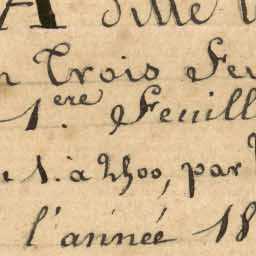 A Ville
Trois Feu
1.ere Feuill
1. à 2500, par
l'année 18